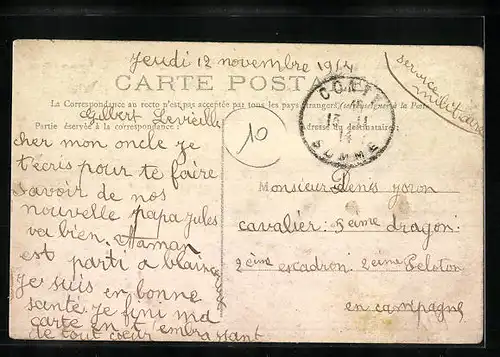 Jeudi 12 novembre 1914
service militaire
CARTE POSTALE
La Correspondance au recto n'est pas acceptée par tous les pays étrangers
Gilbert Levieille
Partie réservée à la correspondance:
Adresse du destinataire:
10
CONTY
13 11
14
SOMME
cher mon oncle je
t'écris pour te faire
savoir de nos
nouvelle papa Jules
va bien. Maman
est parti a
Je suis en bonne
santé. je fini ma
carte en t embrassant
de tout coeur
Monsieur Denis
cavalier: 5ème dragon:
2ème escadron. 2ème Peloton
en campagne